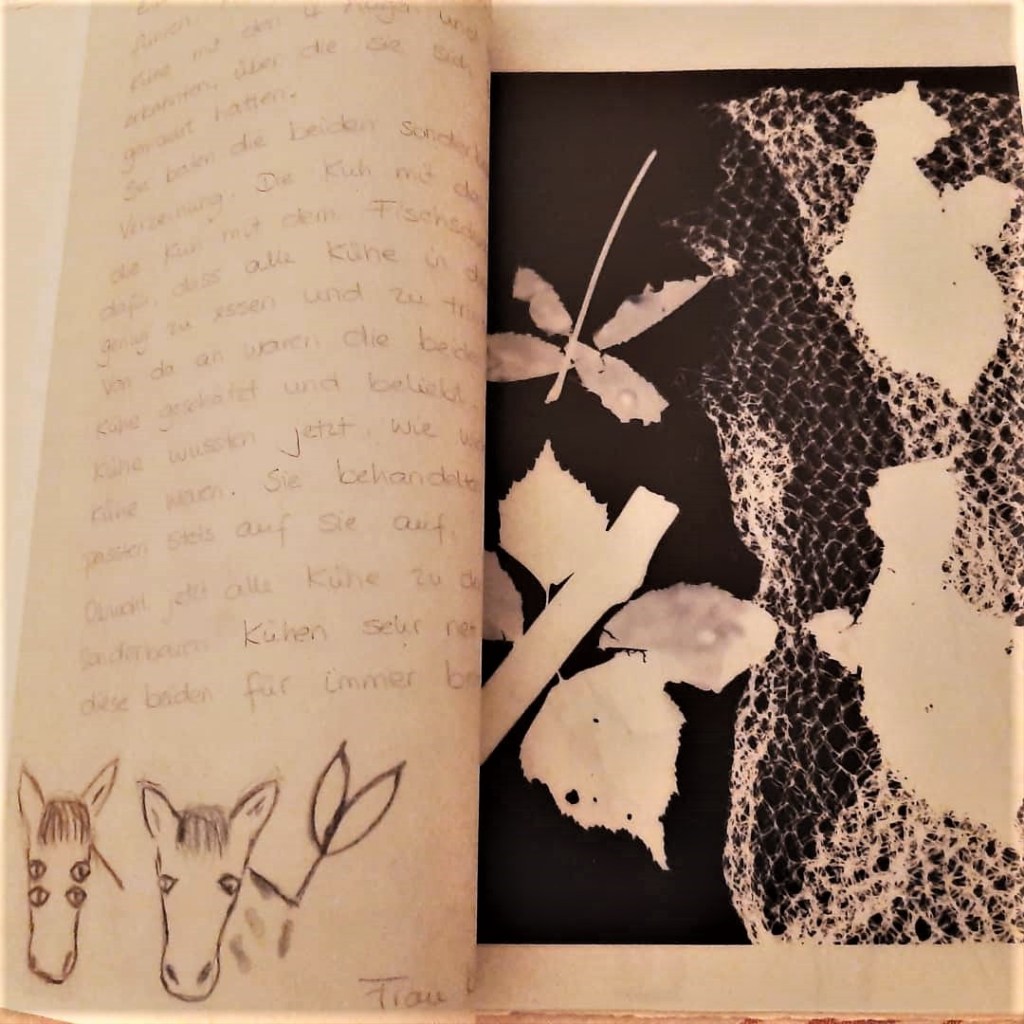 Kühe mit den 4 Augen und
erkannten, über die sie sich
gewundert hatten.
So baten die beiden sonder
Verzeihung. Die Kuh mit de
die Kuh mit dem Fischsch
dafür, dass alle Kühe in d
genug zu essen und zu trin
Von da an waren die beide
Kühe geschätzt und beliebt.
Kühe wussten jetzt, wie
Kühe waren. Sie behandelte
passten stets auf sie auf.
Obwohl jetzt alle Kühe zu de
sonderbaren Kühen sehr ne
diese beiden für immer be
Frau